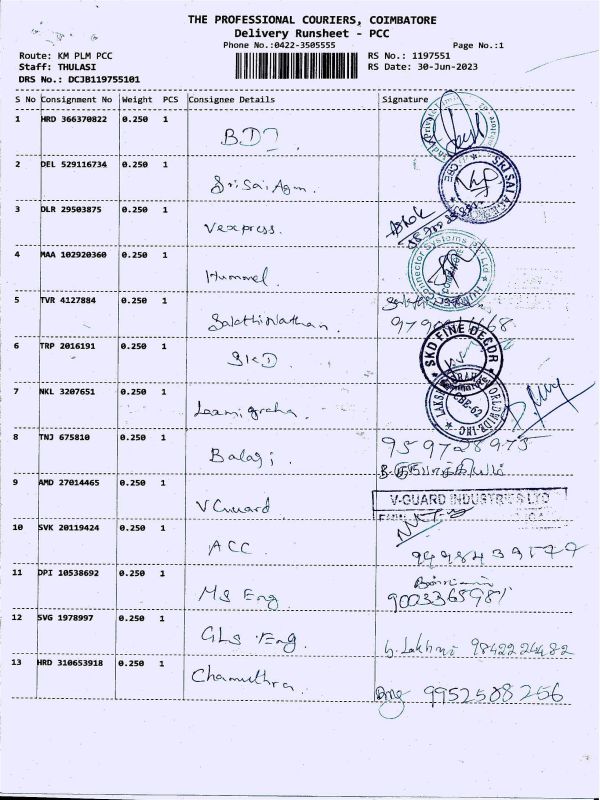 THE PROFESSIONAL COURIERS, COIMBATORE
Delivery Runsheet - PCC
Phone No.:0422-3505555 Page No.:1
Route: KM PLM PCC RS No.: 1197551
Staff: THULASI RS Date: 30-Jun-2023
DRS No.: DCJB119755101
S No Consignment No Weight PCS Consignee Details Signature
1 HRD 366370822 0.250 1
2 DEL 529116734 0.250 1 Sri Sai Agen.
SRI SAI
3 DLR 29503875 0.250 1 Vexpress. Ashok
4 MAA 102920360 0.250 1 Hummel
Connector Systems Pvt Ltd
5 TVR 4127884 0.250 1 Sakthi Nathan.
6 TRP 2016191 0.250 1 SKD
SKD FINE DECOR
7 NKL 3207651 0.250 1 Laxmi graha
WORLDWIDE-INC
8 TNJ 675810 0.250 1 Balaji 959728975
9 AMD 27014465 0.250 1 V Guard V-GUARD INDUSTRIES LTD
10 SVK 20119424 0.250 1 ACC
11 DPI 10538692 0.250 1 MS Eng 9003365981
12 SVG 1978997 0.250 1 GLS Eng. 9842224482
13 HRD 310653918 0.250 1 9952508256